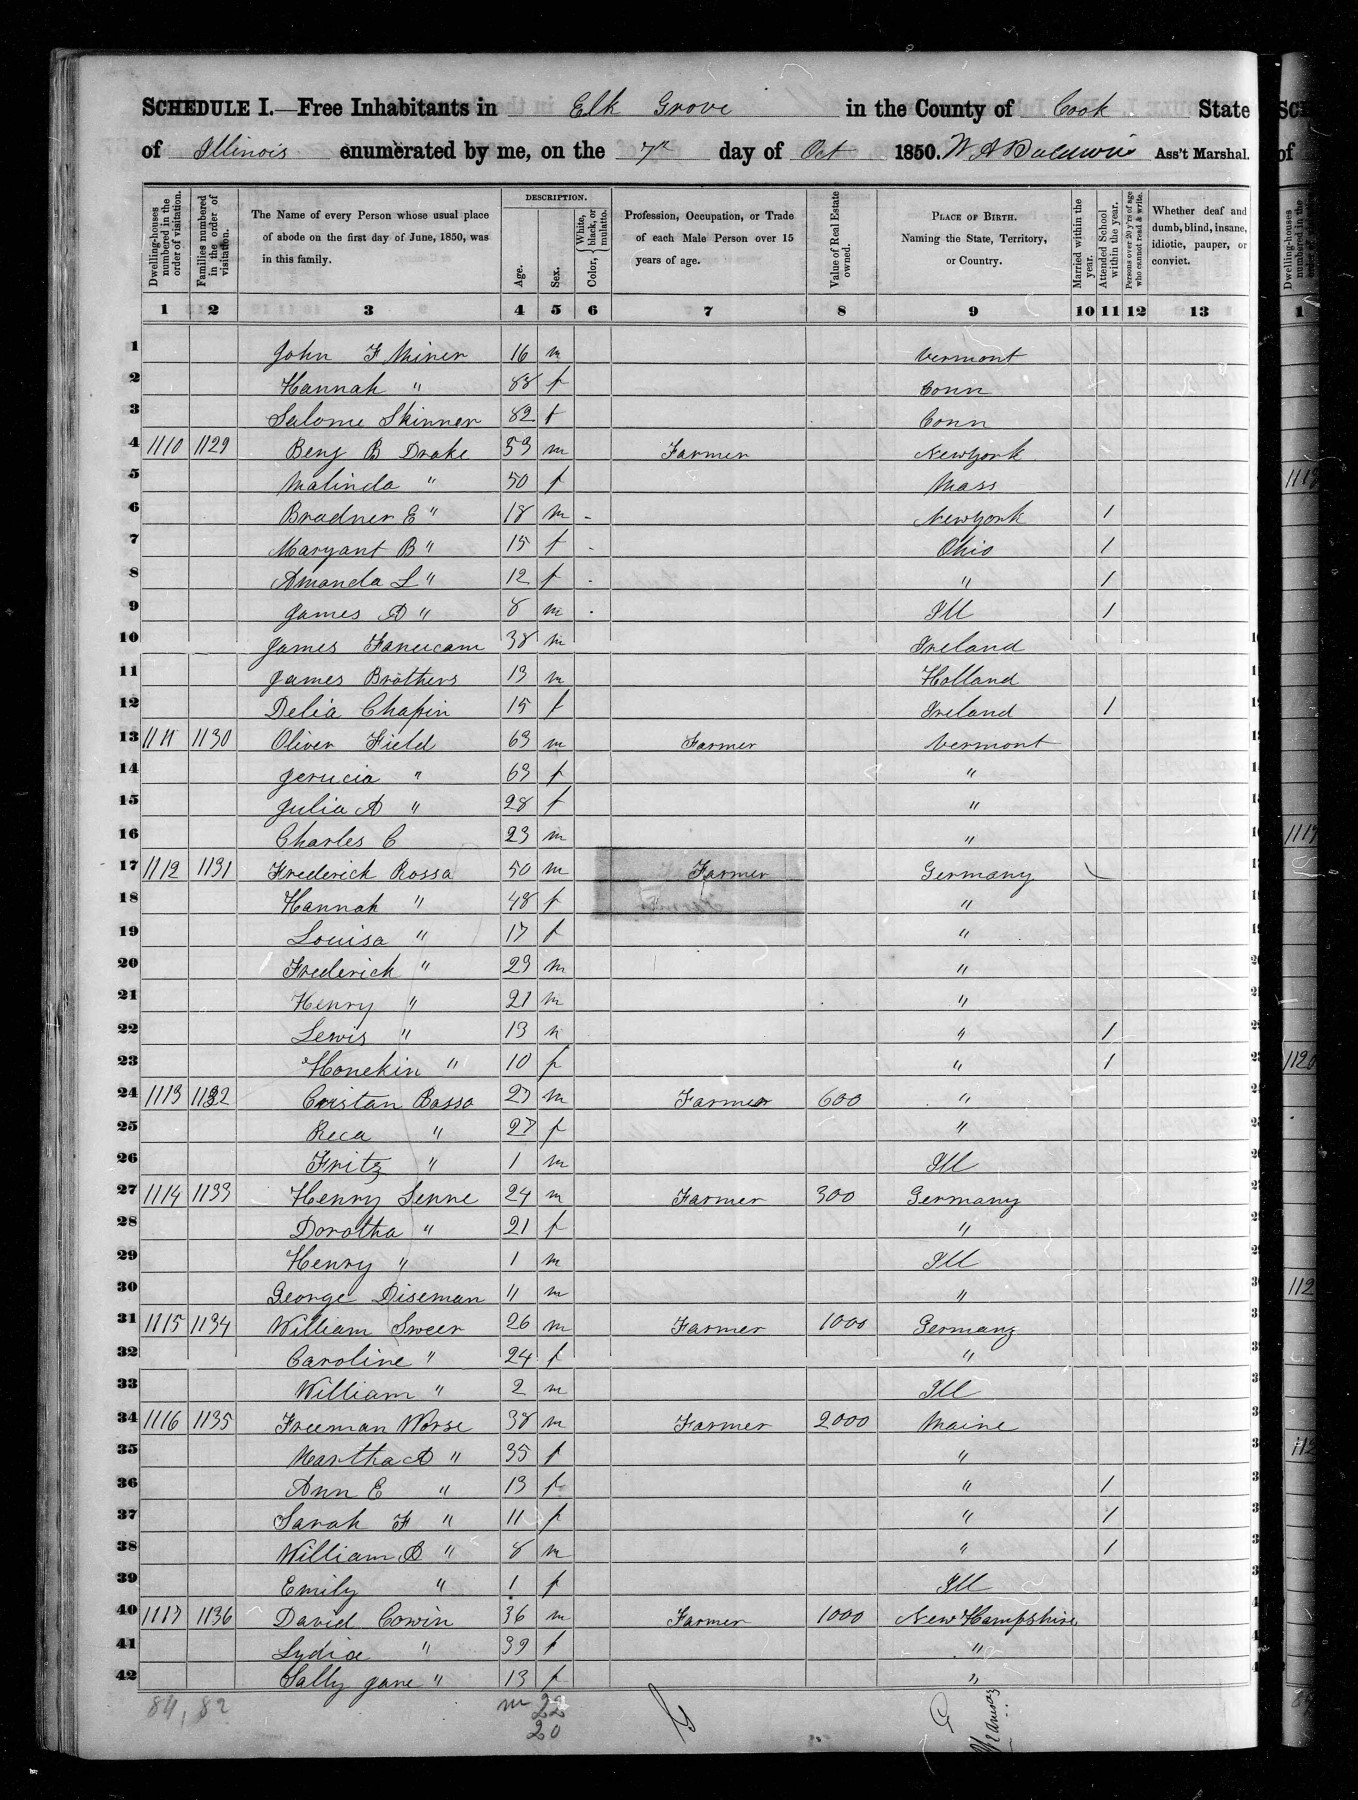 SCHEDULE I.—Free Inhabitants in Elk Grove in the County of Cook State
of Illinois enumerated by me, on the 7th day of Oct 1850. W A Baldwin Ass't Marshal.
Dwelling-houses numbered in the order of visitation.
Families numbered in the order of visitation.
The Name of every Person whose usual place of abode on the first day of June, 1850, was in this family.
DESCRIPTION.
Age.
Sex.
Color, { White, black, or mulatto.
Profession, Occupation, or Trade of each Male Person over 15 years of age.
Value of Real Estate owned.
PLACE OF BIRTH. Naming the State, Territory, or Country.
Married within the year.
Attended School within the year.
Persons over 20 years of age who cannot read & write.
Whether deaf and dumb, blind, insane, idiotic, pauper, or convict.
1 2 3 4 5 6 7 8 9 10 11 12 13
1 John F Miner 16 m Vermont
2 Hannah " 88 f Conn
3 Salome Skinner 82 f Conn
4 1110 1129 Benj B Drake 53 m Farmer New York
5 Malinda " 50 f Mass
6 Bradner E " 18 m New York 1
7 Maryant B " 15 f Ohio 1
8 Amanda L " 12 f " 1
9 James D " 8 m Ill 1
10 James 38 m Ireland
11 James Brothers 13 m Holland
12 Delia Chapin 15 f Ireland 1
13 1111 1130 Oliver Field 63 m Farmer Vermont
14 Jerucia " 63 f "
15 Julia A " 28 f "
16 Charles C 23 m "
17 1112 1131 Frederick Rossa 50 m Farmer Germany
18 Hannah " 48 f "
19 Louisa " 17 f "
20 Frederick " 23 m "
21 Henry " 21 m "
22 Lewis " 13 m " 1
23 Honekin " 10 f " 1
24 1113 1132 Cristan Bassa 27 m Farmer 600 "
25 Reca " 27 f "
26 Fritz " 1 m Ill
27 1114 1133 Henry Senne 24 m Farmer 300 Germany
28 Dorotha " 21 f "
29 Henry " 1 m Ill
30 George Diseman 11 m "
31 1115 1134 William Sweer 26 m Farmer 1000 Germany
32 Caroline " 24 f "
33 William " 2 m Ill
34 1116 1135 Freeman Worse 38 m Farmer 2000 Maine
35 Martha A " 35 f "
36 Ann E " 13 f " 1
37 Sarah F " 11 f " 1
38 William B " 8 m " 1
39 Emily " 1 f Ill
40 1117 1136 David Cowin 36 m Farmer 1000 New Hampshire
41 Lydia " 39 f "
42 Sally Jane " 13 f "
84, 82 m 22
20